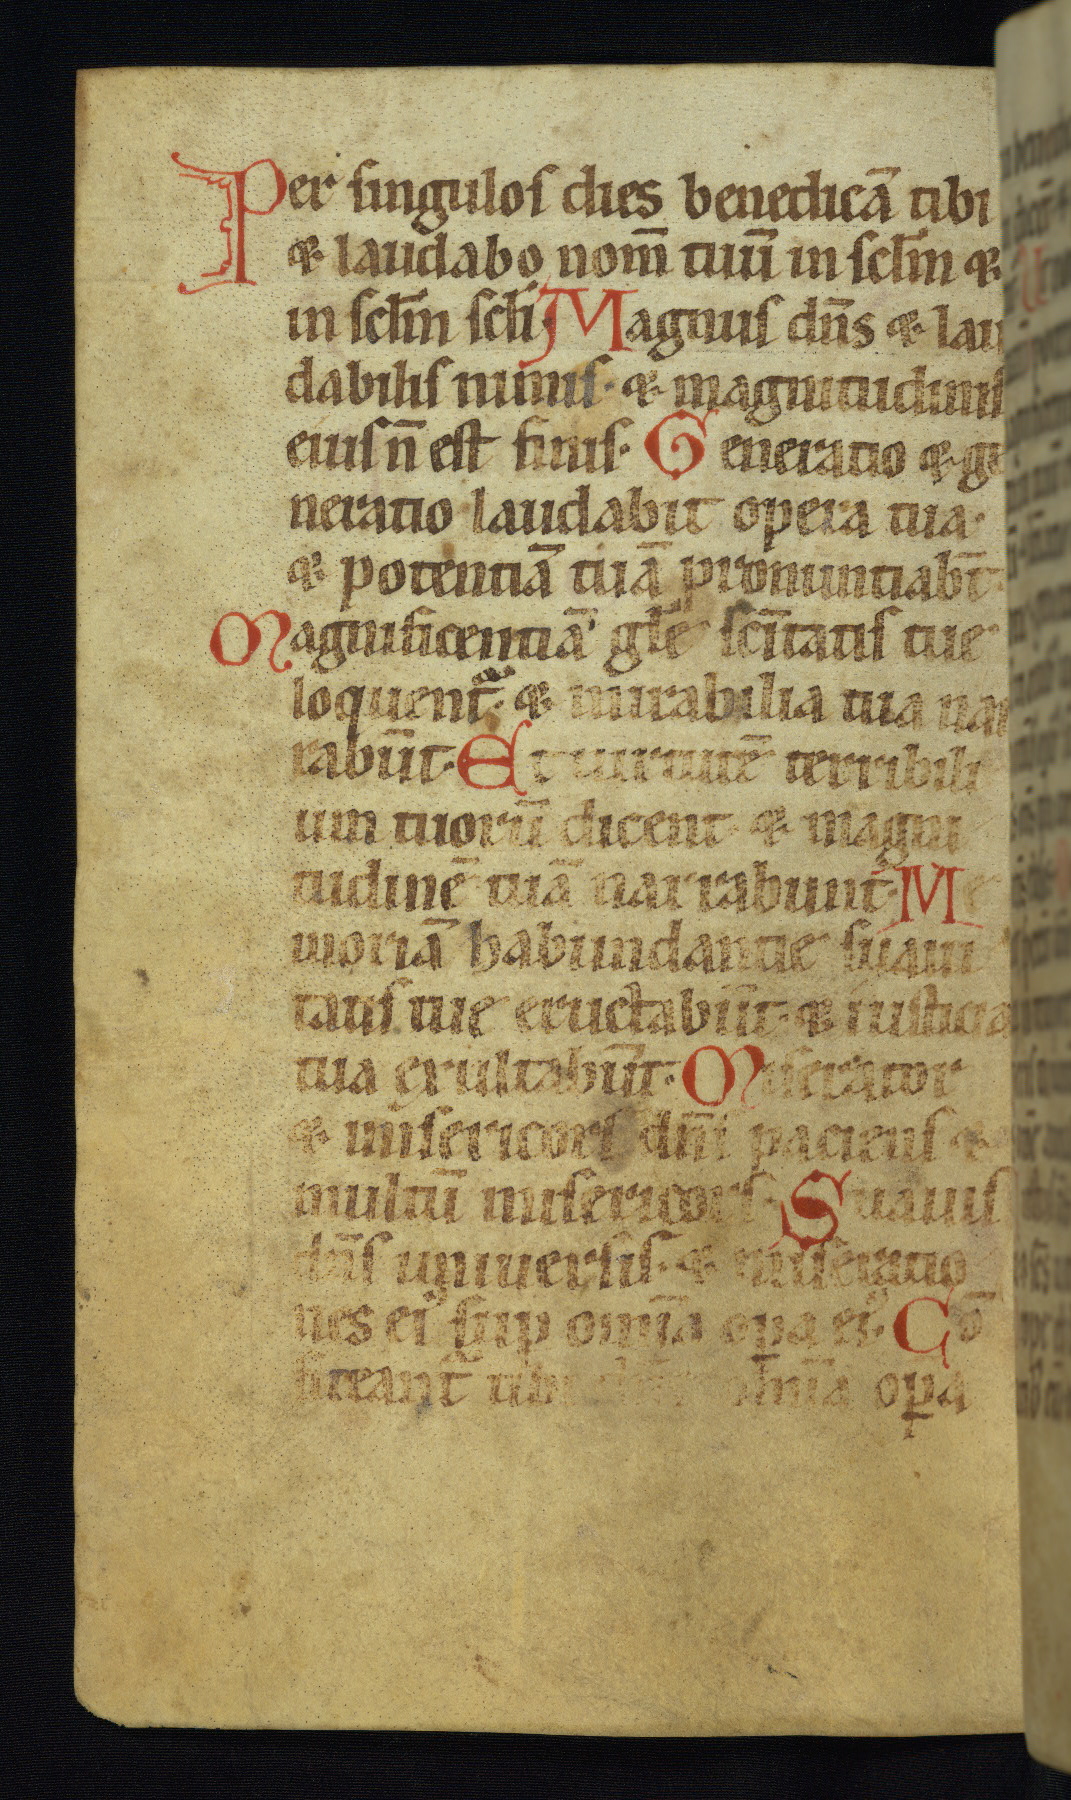 Per singulos dies benedicā tibi
⁊ laudabo nom̄ tuū in sc̄lm ⁊
in sc̄lm sc̄li. Magnus dn̄s ⁊ lau
dabilis nimis. ⁊ magnitudinis
eius n̄ est finis. Generatio ⁊ ge
neratio laudabit opera tua.
⁊ potentiā tuā pronuntiabt̄
Magnificentiā gl̄e sc̄itatis tue
loquent̄. ⁊ mirabilia tua nar
rabūt. Et uirtutē terribili
um tuorū dicent ⁊ magni
tudinē tuā narrabunt. Me
moriā habundantie suaui
tatis tue eructabūt. ⁊ iusticia
tua exultabūt. Miserator
⁊ misericors dn̄s paciens ⁊
multū misericors. Suauis
dn̄s uniuersis. ⁊ miseratio
nes ei᾽ sup om̄ia opa ei᾽. Cō
fiteant̄ tibi om̄ia op̄a